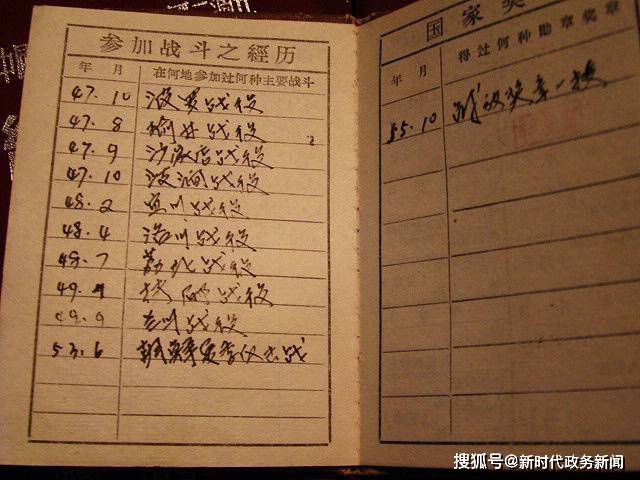 参加战斗之經历
年 月 在何地参加过何种主要战斗
47.10 波罗战役
47.8 榆林战役
47.9 沙家店战役
47.10 战役
48.2 宜川战役
48.4 洛川战役
49.7 战役
49. 扶郿战役
49.9 兰州战役
53.6 朝鲜 战
国家奖
年 月 得过何种勋章奖章
55.10 奖章一枚
搜狐号@新时代政务新闻